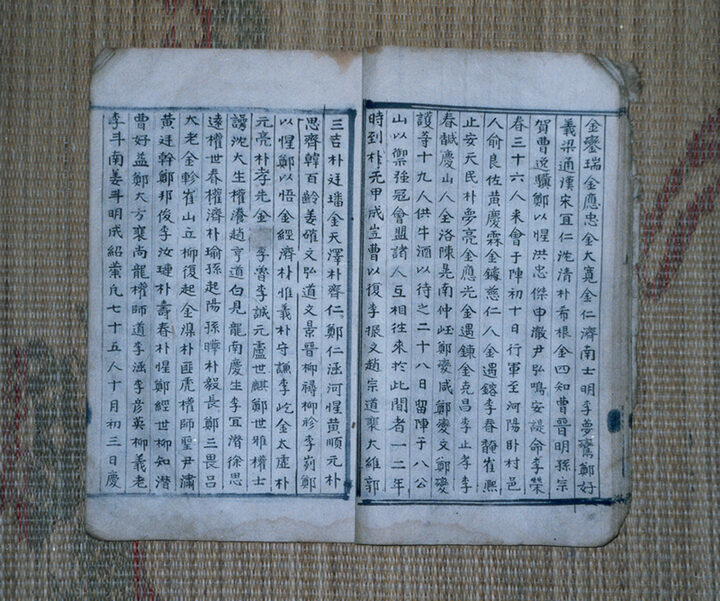 金鑾瑞金應忠金大寬金仁濟南士明李夢鸞鄭好
義梁通漢宋宜仁沈清朴希根金四知曹晉明孫宗
賀曹逸驥鄭以惺洪忠傑申瀲尹弘鳴安諟命李榮
春三十六人来會于陣初十日行軍至河陽卧村邑
人俞良佐黃慶霖金鏽慈仁人金遇鎔李春馣崔熙
止安天民朴夢亮金應光金遇鍊金克昌李止孝李
春馘慶山人金洛陳是南仲㞳鄭變咸鄭變文鄭變
頀等十九人供牛酒以待之二十八日留陣于八公
山以禦強冠會盟諸人互相往來於此間者一二年
時到朴元甲成岦曹以復李振文趙宗道裵大維郭
三吉朴廷璠金天澤朴齊仁鄭仁涵河惺黃順元朴
思齊韓百齡姜確文弘道文景晉柳禱柳袗李茢鄭
以惺鄭以悟金經濟朴惟義朴守謙李屹金太虛朴
元亮朴孝先金 李魯李誠元盧世麒鄭世雅權士
諤沈大生權濤趙亨道白見龍南慶生李宜潛徐思
遠權世春權濟朴瑜孫起陽孫暐朴毅長鄭三畏呂
大老金軫崔山立柳復起金滉朴匪虎權師聖尹瀟
黃廷幹鄭邦俊李汝璉朴壽春朴惺鄭經世柳知潛
曹好益鄭大方裵尚龍權師道李涵李彥英柳義老
李斗南姜斗明成紹蕭氏七十五人十月初三日慶